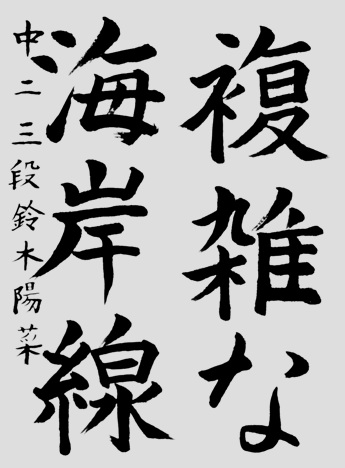 複雑な
海岸線
中二三段鈴木陽菜